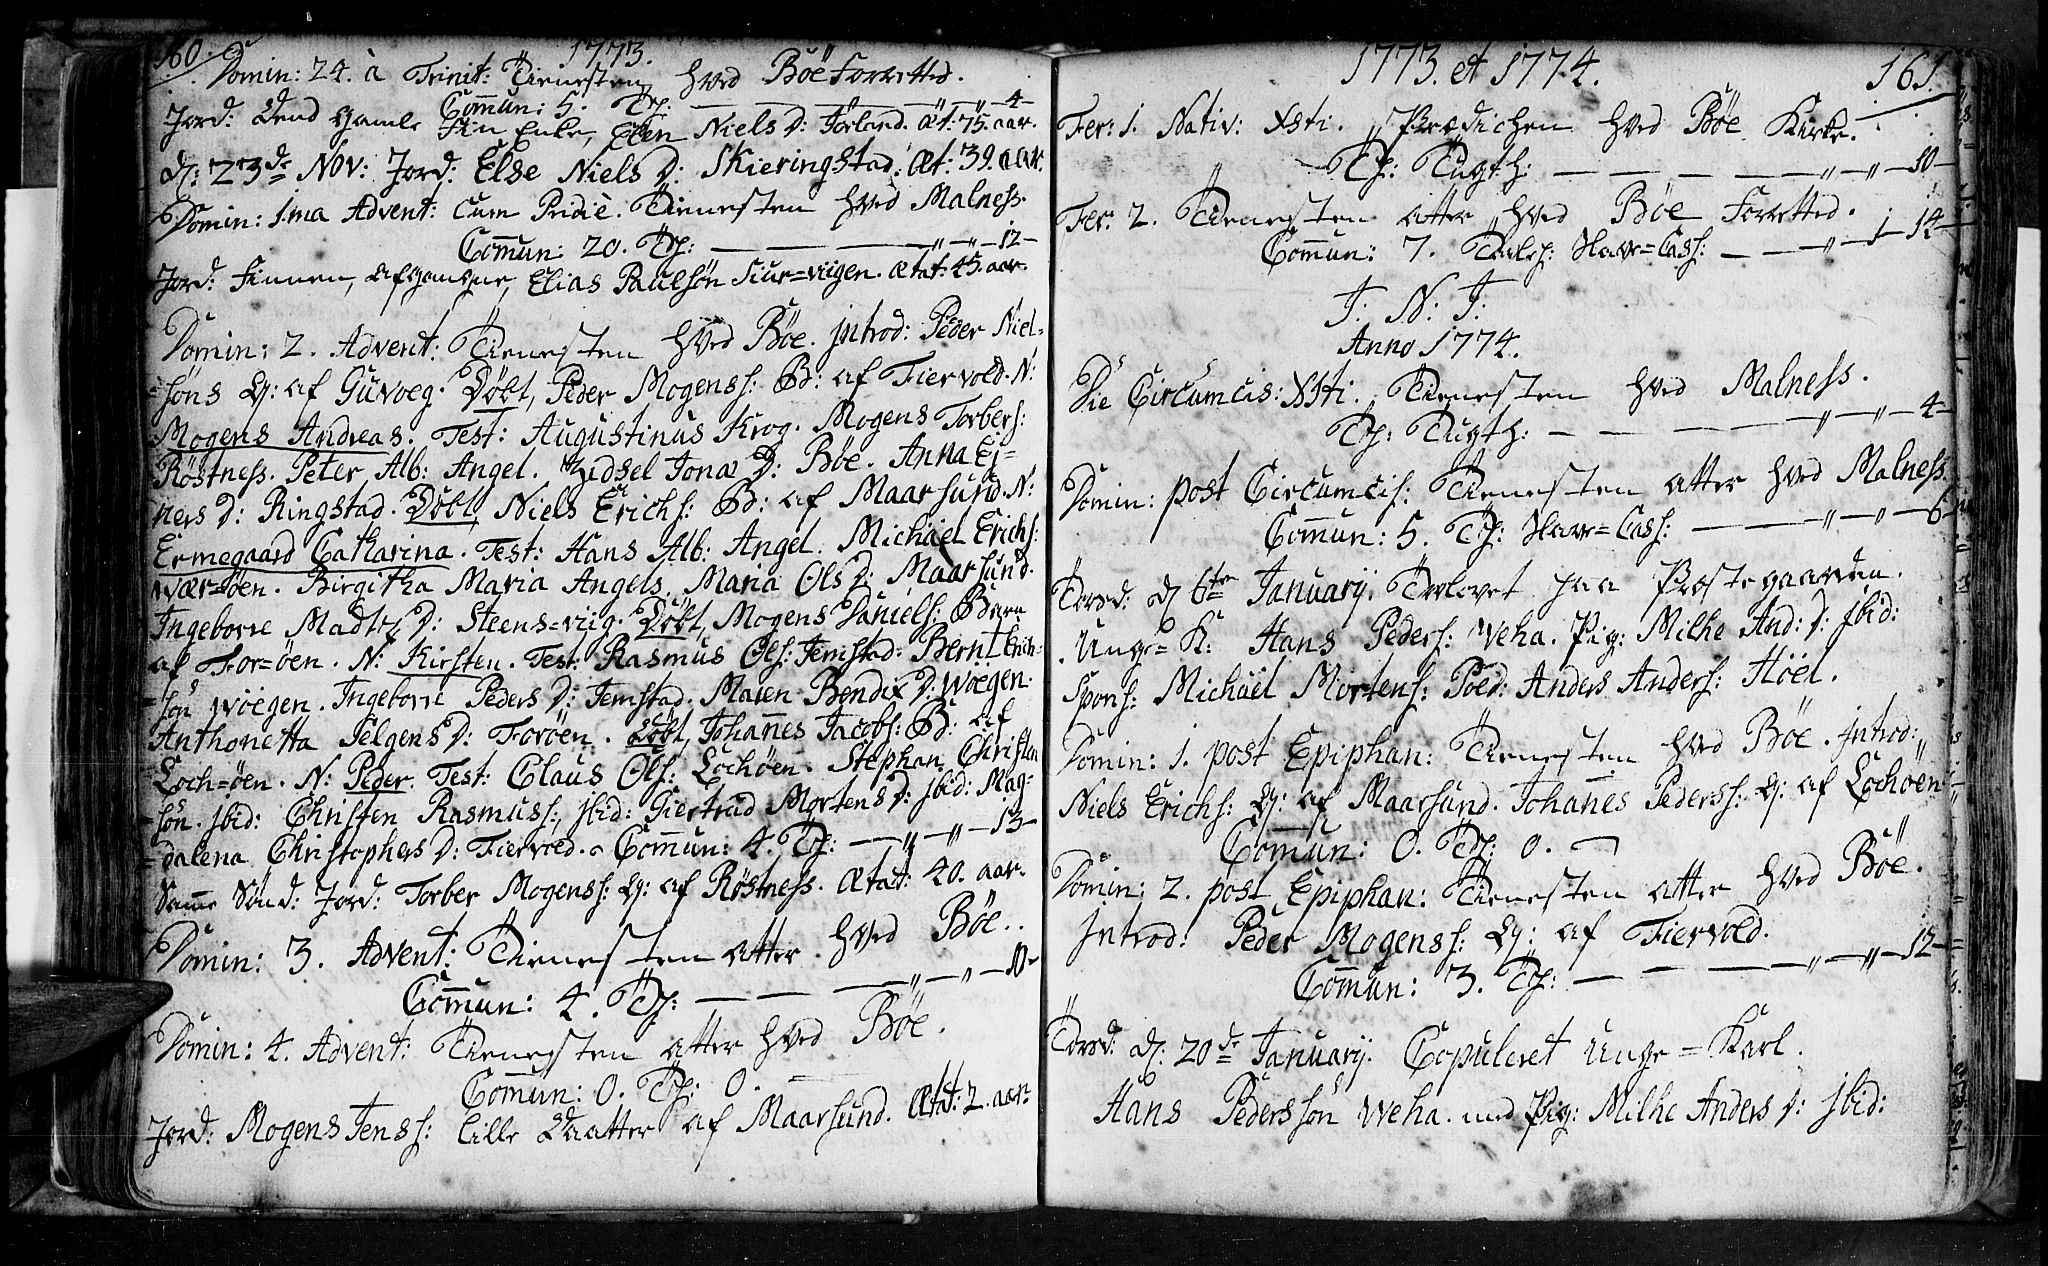 160.
1773.
Domin: 24. à Trinit: Tienesten hved Böe Forretted.
Commun: 5. Tf: — — — „ — „ — 4 —
Jord: Dend gamle Fin Enke, Elen Niels D: Jörland. Æt: 75. aar.
d: 23de Nov: Jord: Else Niels D: Skieringstad. Æt: 39. aar.
Domin: 1.ma Advent: Cum Pridie. Tienesten hved Malness.
Commun: 20. Tf: — — — „ — „ — 12 —
Jord: Finnen, afgangne, Elias Paulsön Siur=viigen. Ætat: 45. aar.
Domin: 2. Advent: Tienesten hved Böe. Introd: Peder Niel-
=söns Q: af Guvoeg. Döbt, Peder Mogens: B: af Fiervold. N:
Mogens Andreas. Test: Augustinus Krog. Mogens Torbers:
Röstness. Peter Alb: Angel. Zidsel Jonæ D: Böe. Anna Ei-
ners D: Ringstad. Döbt, Niels Erichs: B: af Maarsund. N:
Ermegaard Catharina. Test: Hans Alb: Angel. Michael Erichs:
Wær=öen. Birgitha Maria Angels. Maria Ols D: Maarsund.
Ingeborre Madts D: Steens=viig. Döbt, Mogens Daniels: Barn
af For=öen. N: Kirsten. Test: Rasmus Ols: Jemstad. Bernt Erich-
=sön Wöegen. Ingeborre Peders D: Jemstad. Maren Bendix D: Woegen.
Anthonetta Jelgens D: Foröen. Döbt, Johannes Jacobs: B: af
Loch=öen. N: Peder. Test: Claus Ols: Lochöen. Stephan Christen
sön. Jbid: Christen Rasmuss:, Jbid: Giertrud Mortens D: Jbid: Mag-
=dalena Christophers D: Fiervold. Commun: 4. Tf: — „ — „ — 13 —
Samme Sönd: Jord: Torber Mogens: Q: af Röstness. Ætat: 40. aar.
Domin: 3. Advent: Tienesten atter hved Böe.
Commun: 4. Tf: — — — „ — „ — 10 —
Domin: 4. Advent: Tienesten atter hved Böe.
Commun: 0. Tf: 0. —
Jord: Mogens Jenss: lille Daatter af Maarsund. Ætat: 2. aar.
1773. et 1774.
161.
Fer: 1. Nativ: Xsti. Prædichen hved Böe Kirke.
Tf: Tugth: — — — — „ — „ — 10 —
Fer: 2. Tienesten atter hved Böe Forretted.
Commun: 7. Slave=Cass: — — „ — 1 — 14 —
J: N: J:
Anno 1774.
Die Circumcis: Xsti. Tienesten hved Malness.
Tf: Tugth: — — — — „ — „ — 4 —
Domin: post Circumcis: Tienesten atter hved Malness.
Commun: 5. Tf: Slave=Cass: — — — „ — „ — 6 —
Torsd: d 6te January. Trolovet paa Prostegaarden.
Unge=K: Hans Peders: Weha. Pig: Milhe And: D: Jbid:
Spons: Michäel Mortens: Poed: Anders Anders: Höel.
Domin: 1. post Epiphan: Tienesten hved Böe. Introd:
Niels Erichs: Q: af Maarsund. Johanes Pederss: Q: af Lochöen.
Commun: 0. Tf: 0. —
Domin: 2. post Epiphan: Tienesten atter hved Böe.
Introd: Peder Mogens: Q: af Fiervold.
Commun: 3. Tf: — — — „ — „ — 12 —
Torsd: d: 20de January. Copuleret Unge=Karl.
Hans Pederssön Weha. med Pig: Milhe Anders D: Jbid: